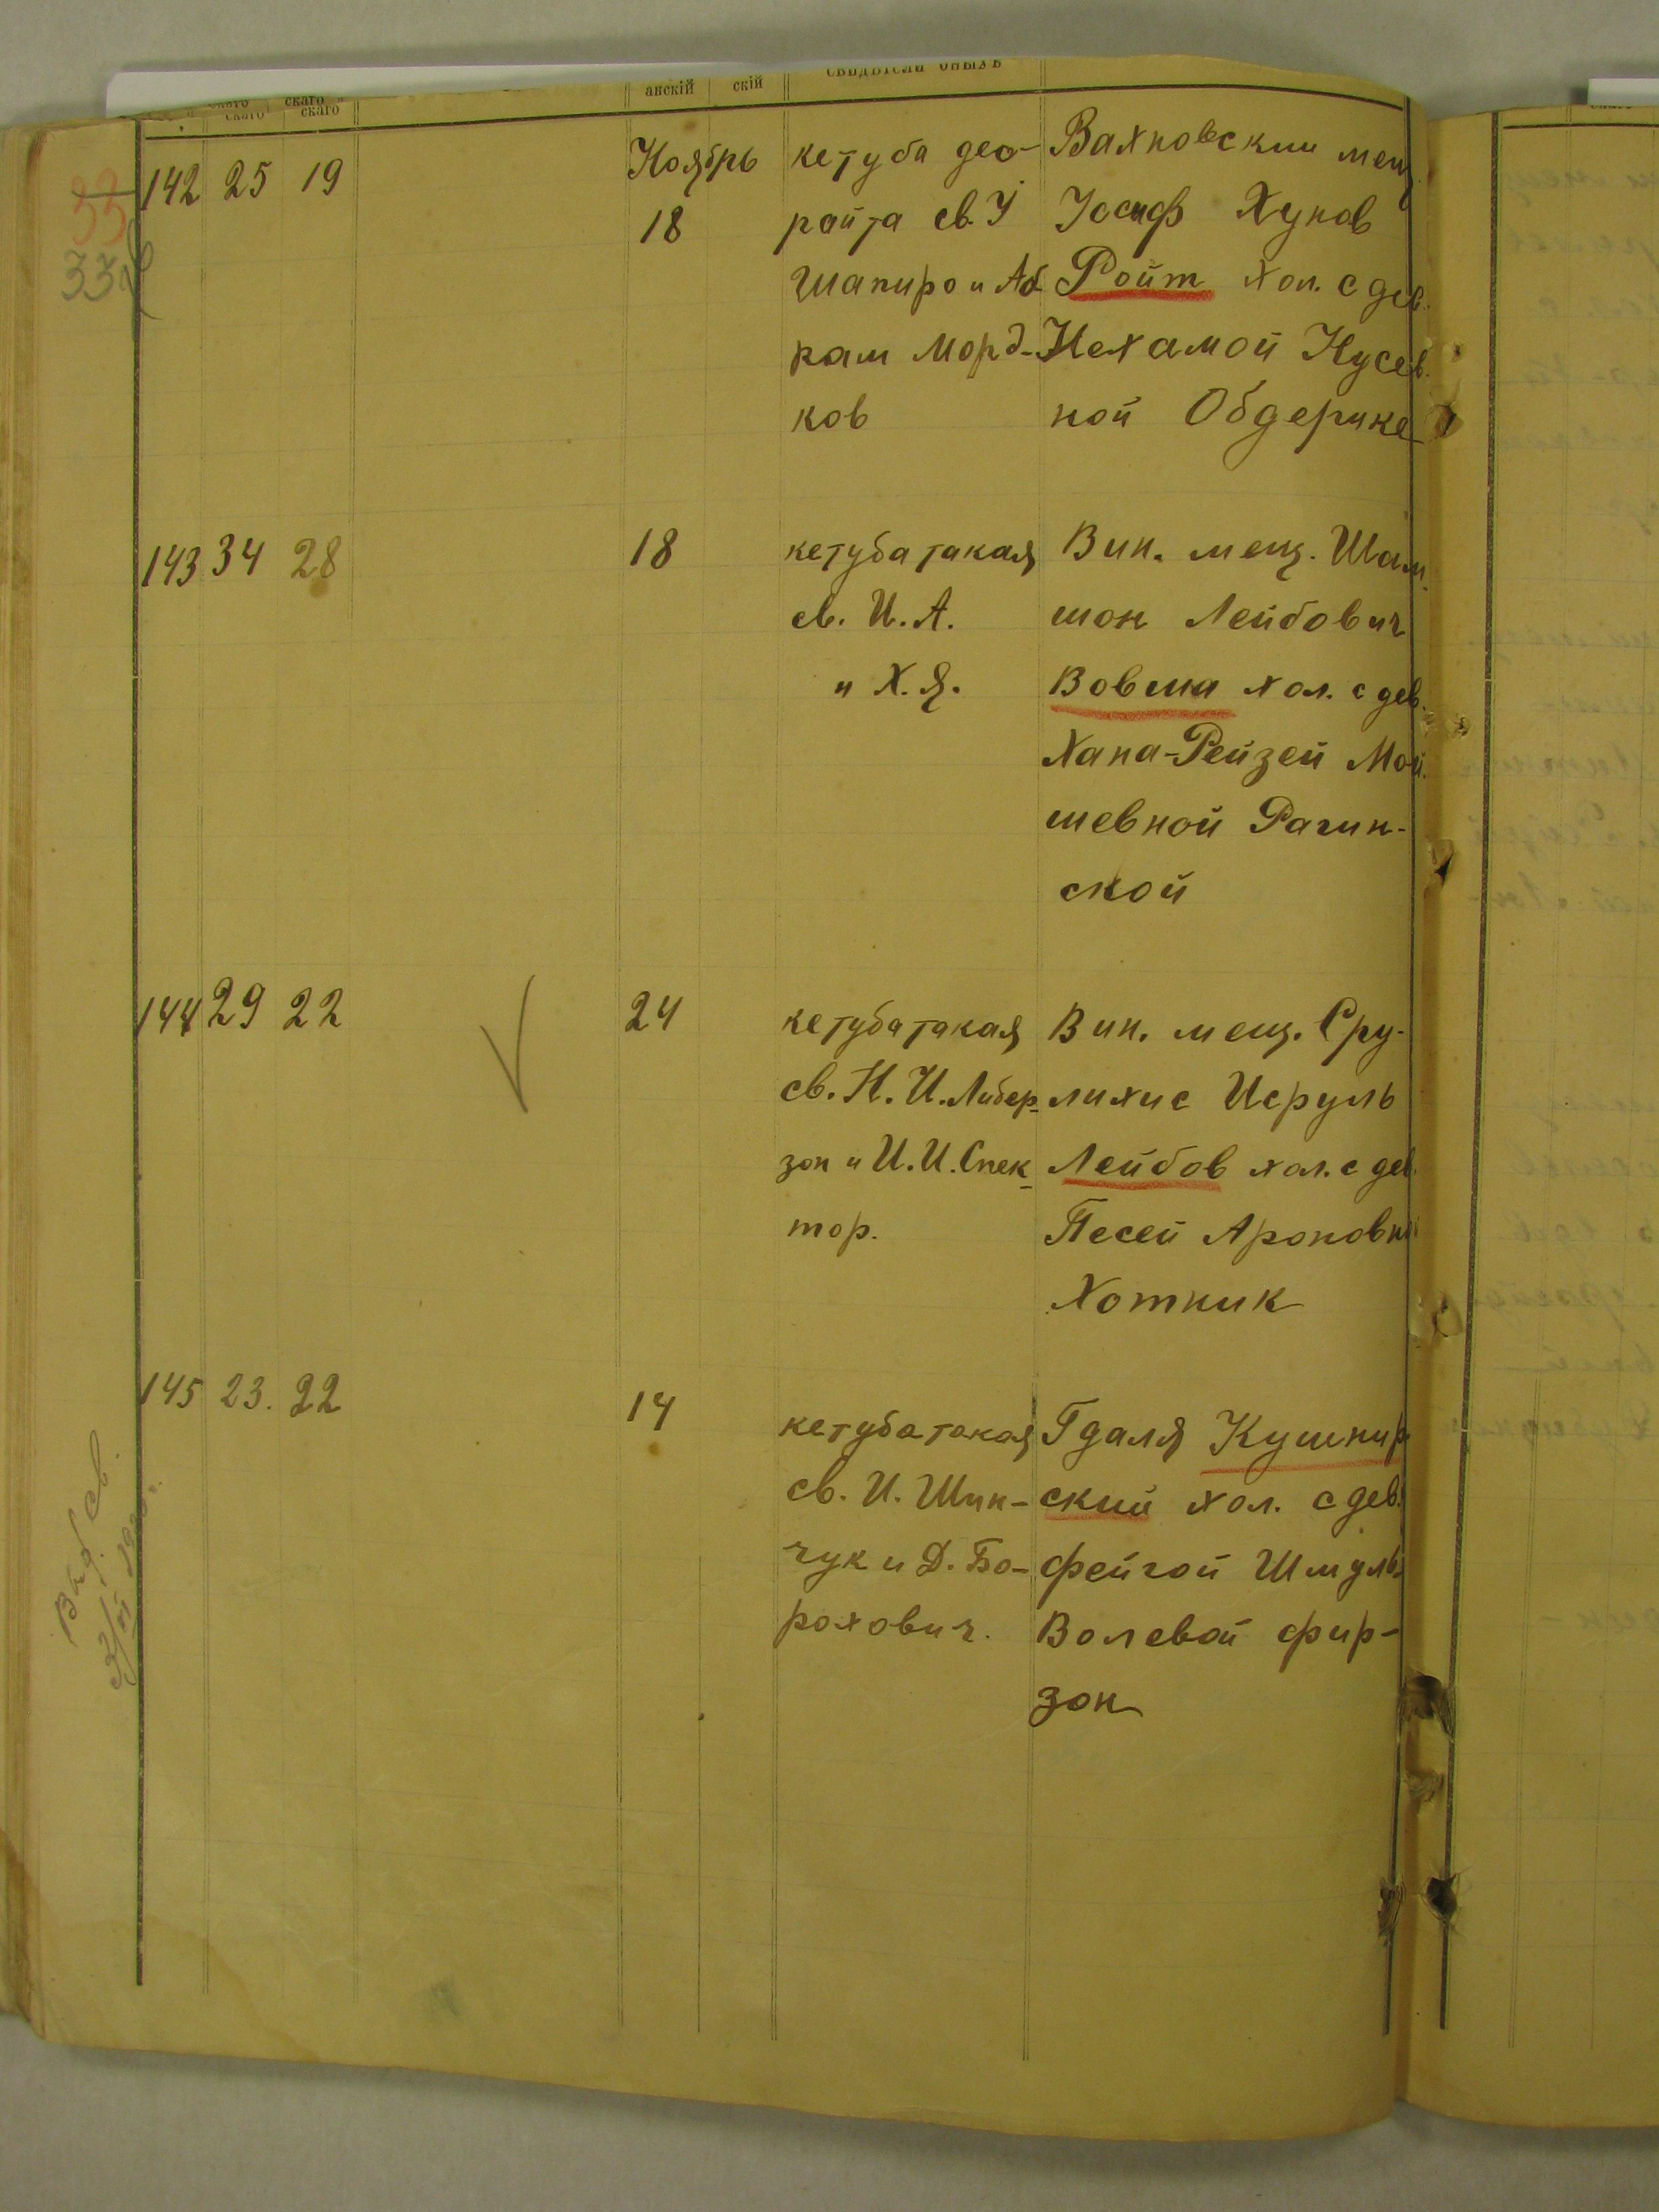 анскій скій свидѣтели оныхъ
скаго скаго
33
142 25 19 Ноябрь 18
кетуба део-
райта св. У
Шапиро и Аб
рам Морд-
ков
Вахновский мещ.
Иосиф Хунов
Ройт хол. с дев.
Нехамой Нусев.
ной Обдерике
143 34 28 18
кетуба такая
св. И. А.
и Х. Я.
Вин. мещ. Шам-
шон Лейбович
Вовша хол. с дев.
Хана-Рейзей Мой-
шевной Рагин-
ской
144 29 22 24
кетуба такая
св. Н. И. Либер-
зон и И. И. Спек-
тор.
Вин. мещ. Сру-
лихис Исруль
Лейбов хол. с дев.
Песей Ароновн
Хотник
145 23. 22 14
кетуба такая
св. И. Шин-
чук и Д. Бо-
рохович.
Гдаля Кушнир
ский хол. с дев.
Фейгой Шмуль
Волевой Фир-
зон
Выд. св.